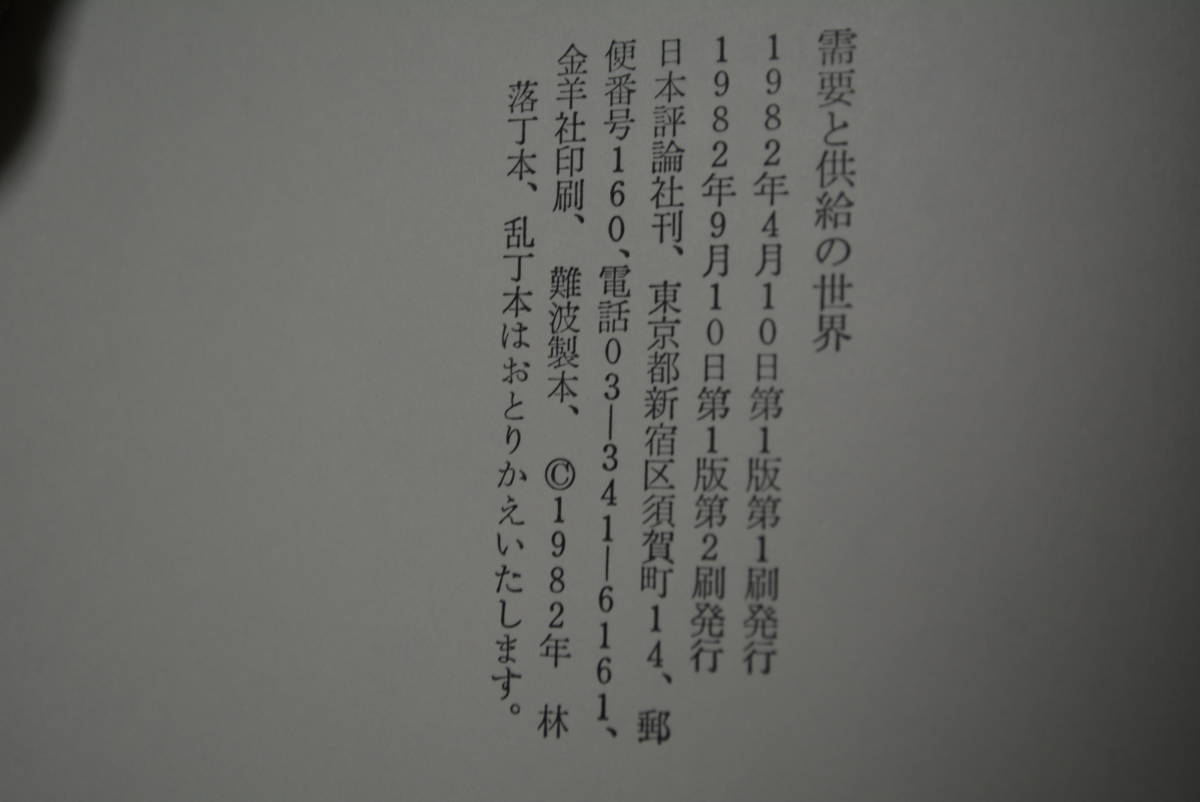 需要と供給の世界
1982年4月10日第1版第1刷発行
1982年9月10日第1版第2刷発行
日本評論社刊、東京都新宿区須賀町14、郵
便番号160、電話03―341―6161、
金羊社印刷、難波製本、©1982年 林
落丁本、乱丁本はおとりかえいたします。